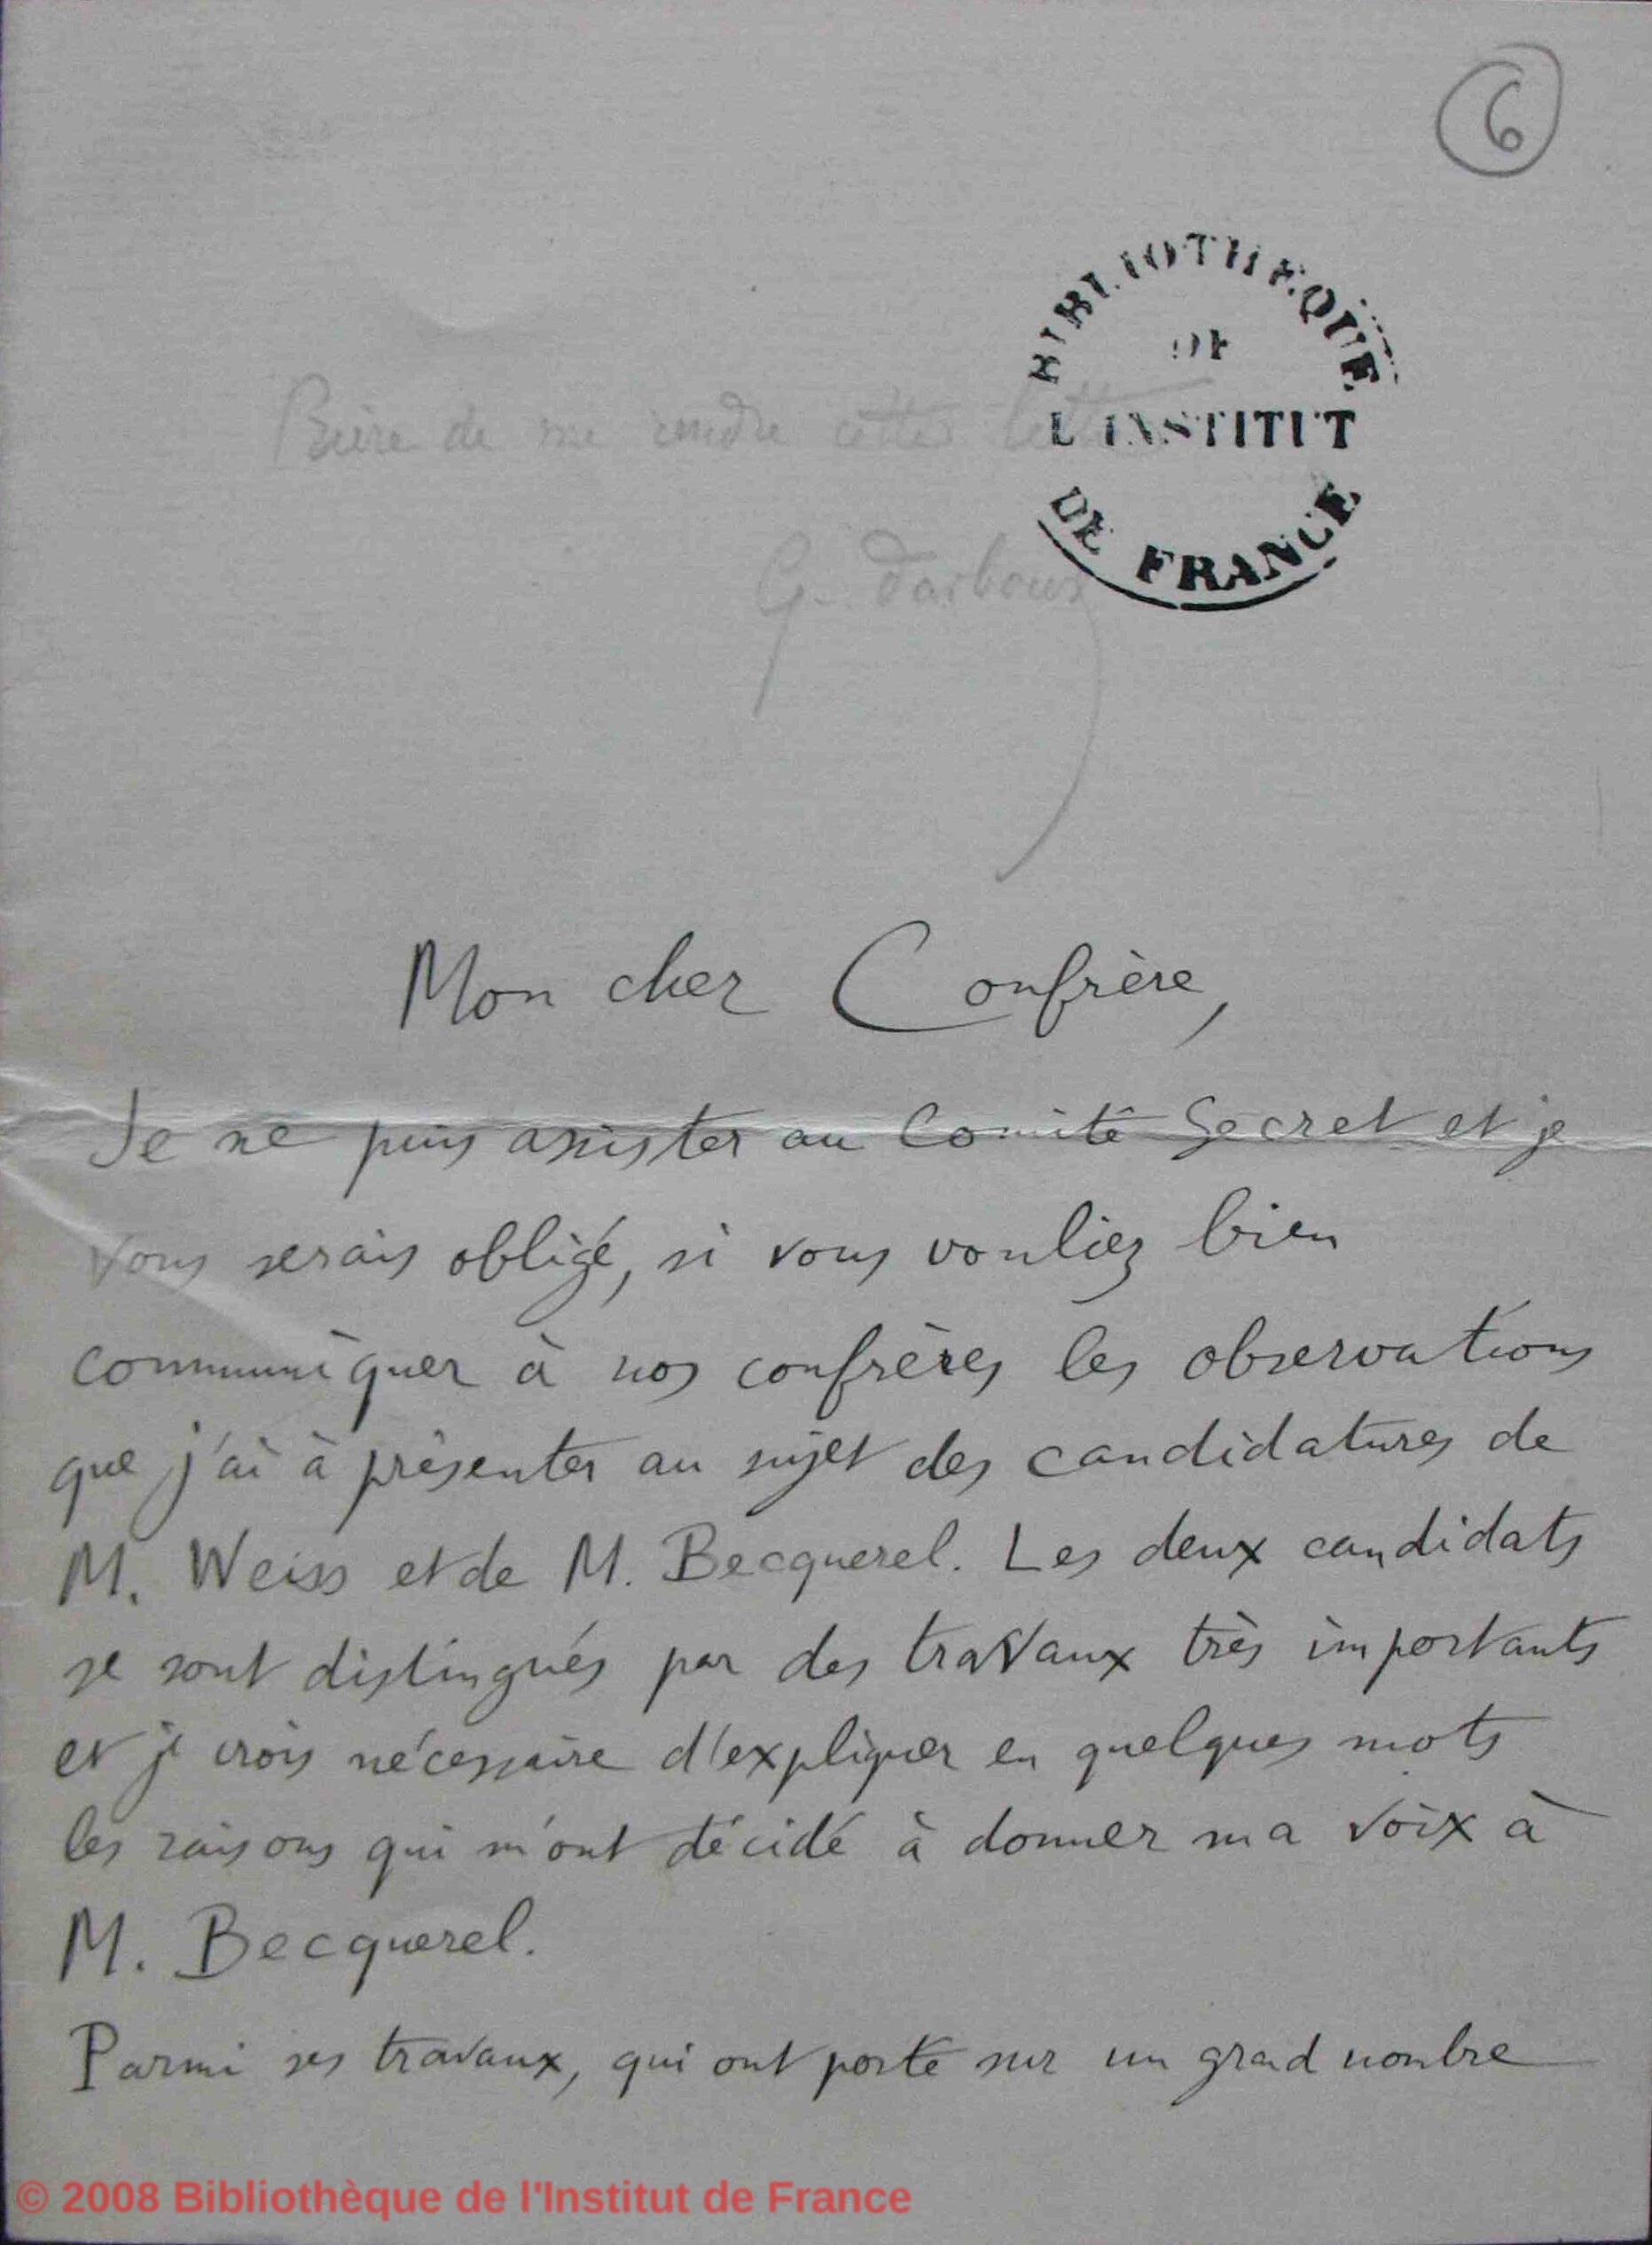 6
BIBLIOTHEQUE
DE
L'INSTITUT
DE FRANCE
Prière de me rendre cette lettre
G. Darboux
Mon cher Confrère,
Je ne puis assister au Comité Secret et je
vous serais obligé, si vous vouliez bien
communiquer à nos confrères les observations
que j'ai à présenter au sujet des candidatures de
M. Weiss et de M. Becquerel. Les deux candidats
se sont distingués par des travaux très importants
et je crois nécessaire d'expliquer en quelques mots
les raisons qui m'ont décidé à donner ma voix à
M. Becquerel.
Parmi ses travaux, qui ont porté sur un grand nombre
© 2008 Bibliothèque de l'Institut de France